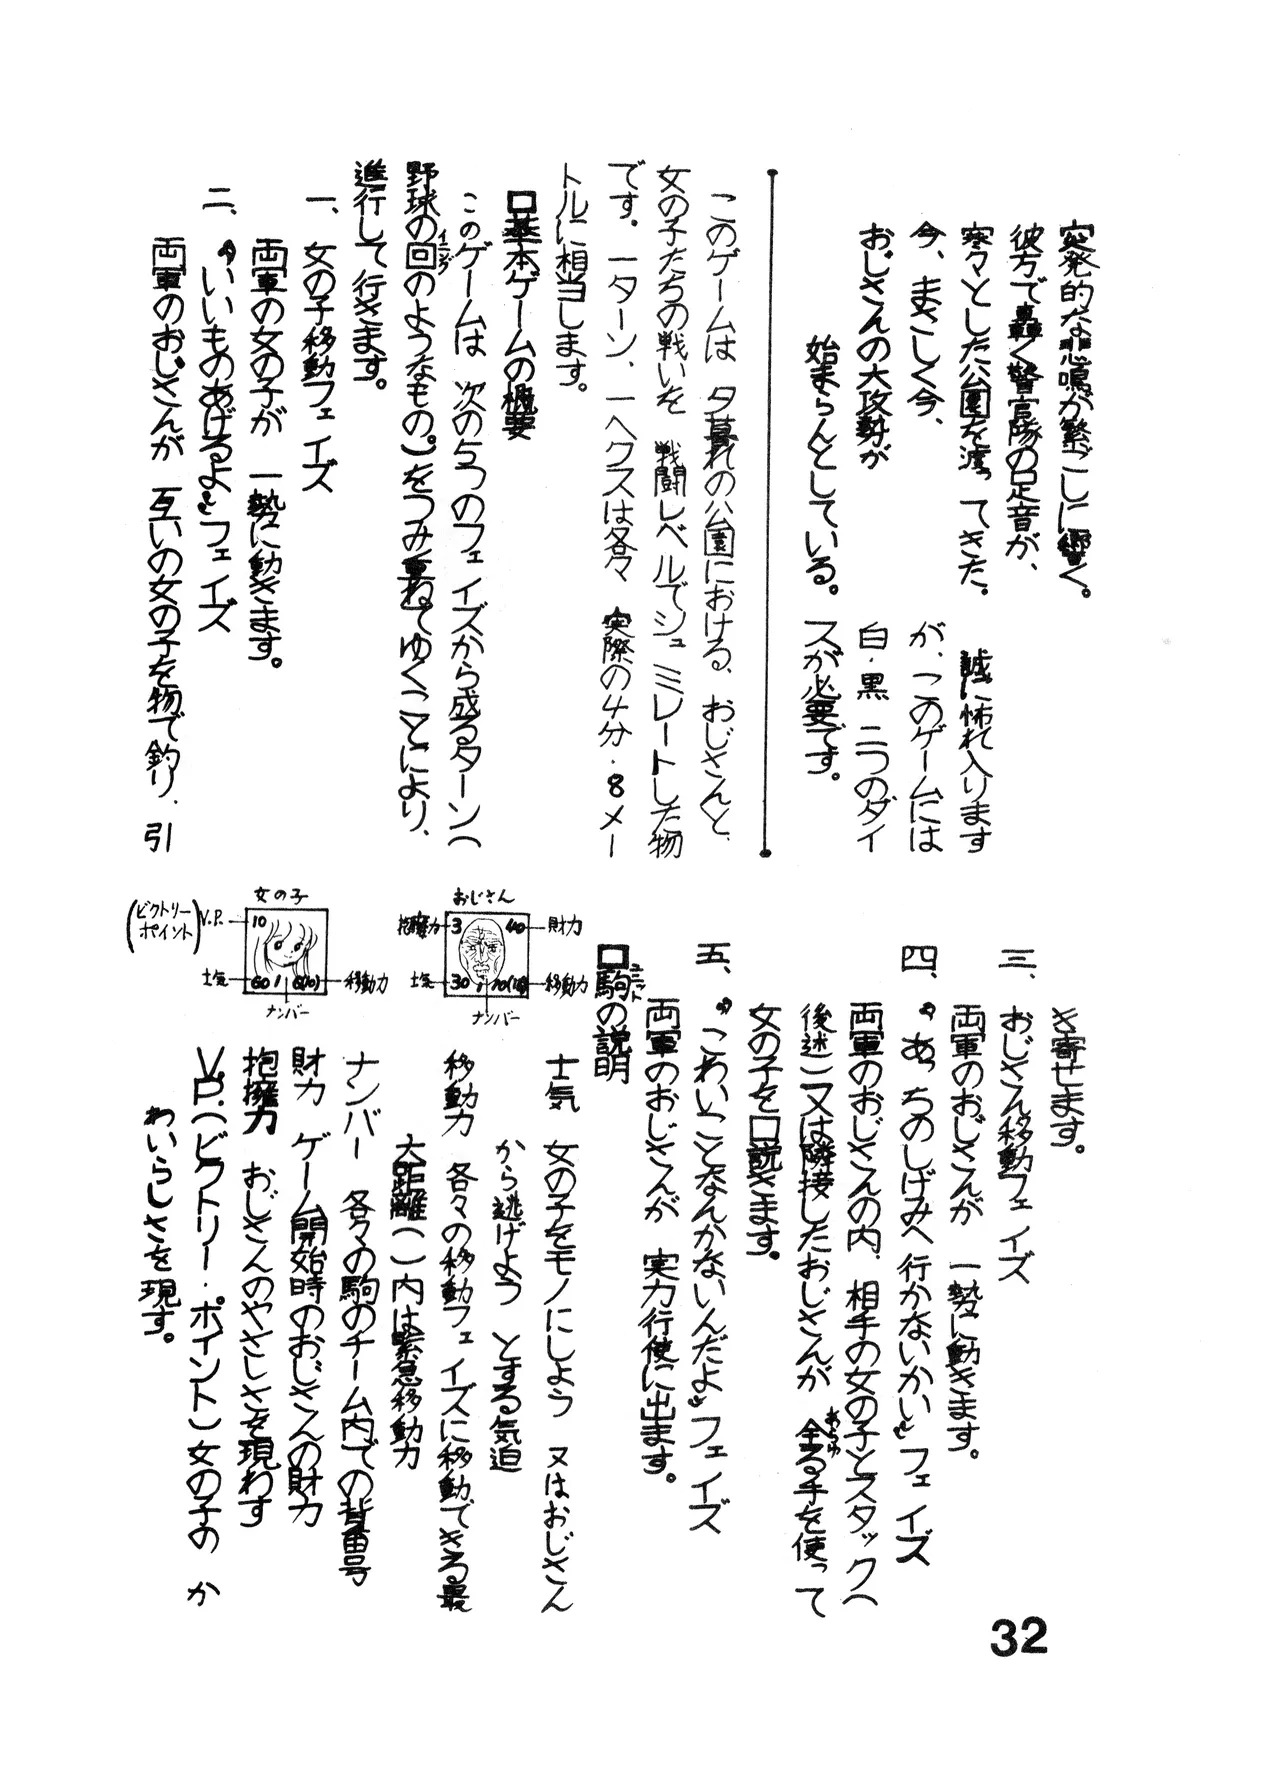 突発的な悲鳴が繁ごしに響く。
彼方で轟く警官隊の足音が、
寒々とした公園を渡ってきた。
今、まさしく今、
おじさんの大攻勢が
始まらんとしている。
誠に怖れ入ります
が、このゲームには
白・黒 二つのダイ
スが必要です。
このゲームは 夕暮れの公園における、おじさんと、
女の子たちの戦いを 戦闘レベルでシュミレートした物
です。一ターン、一ヘクスは各々 実際の4分・8メー
トルに相当します。
口基本ゲームの概要
このゲームは 次の5つのフェイズから成るターン(
野球の回のようなもの。)をつみ重ねてゆくことにより、
イニング
進行して行きます。
一、女の子移動フェイズ
両軍の女の子が 一勢に動きます。
二、〝いいものあげるよ〟フェイズ
両軍のおじさんが 互いの女の子を物で釣り、引
き寄せます。
三、おじさん移動フェイズ
両軍のおじさんが 一勢に動きます。
四、〝あっちのしげみへ行かないかい〟フェイズ
両軍のおじさんの内、相手の女の子とスタック(
後述)又は隣接したおじさんが 全る手を使って
あらゆ
女の子を口説きます。
五、〝こわいことなんかないんだよ〟フェイズ
両軍のおじさんが 実力行使に出ます。
口駒の説明
ユニット
おじさん
抱擁力 3 40 財力
士気 30 1 移動力
ナンバー
女の子
(ビクトリーポイント) V.P. 10
士気 60 1 6(10) 移動力
ナンバー
士気 女の子をモノにしよう 又はおじさん
から逃げよう とする気迫
移動力 各々の移動フェイズに移動できる最
大距離( )内は緊急移動力
ナンバー 各々の駒のチーム内での背番号
財力 ゲーム開始時のおじさんの財力
抱擁力 おじさんのやさしさを現わす
V.P.(ビクトリー・ポイント)女の子の か
わいらしさを現す。
32